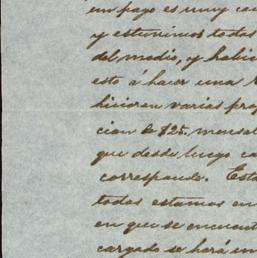 en pago es muy ca
y estuvimos todos
del medio, y habie
esto á hacer una r
hicieron varias pro
cion de $25. mensal
que desde luego ca
corresponde. Esta
todos estamos en
en que se encuent
cargado se hará en